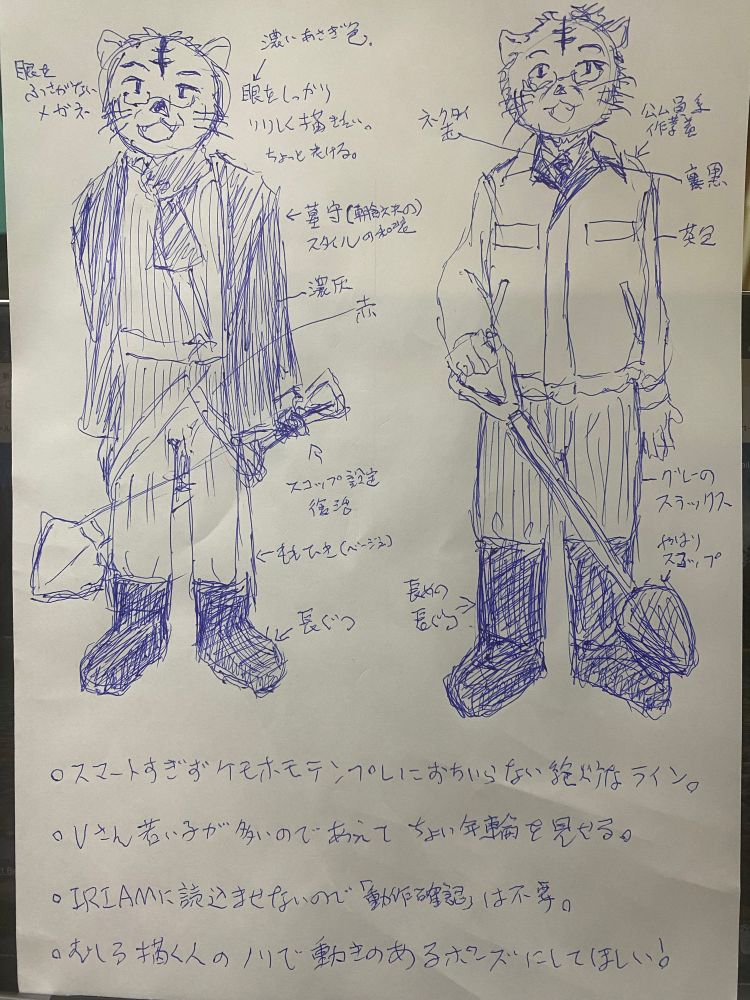 眼を
ふさがない
メガネ
濃いあさぎ色。
眼をしっかり
りりしく描きたい。
ちょっと衣ける。
←墓守(朝倉文夫の)
スタイルの和装
濃灰
赤
スコップ設定
復活
ももひき(ベージュ)
長ぐつ
ネクタイ
赤
公ム員系
作業着
裏黒
茶色
グレーの
スラックス
やはり
スコップ
長めの
長ぐつ
○スマートすぎずケモホモテンプレにおちいらない絶妙なライン。
○Vさん若い子が多いのであえてちょい年輪を見せる。
○IRIAMに読込ませないので「動作確認」は不要。
○むしろ描く人のノリで動きのあるポーズにしてほしい!